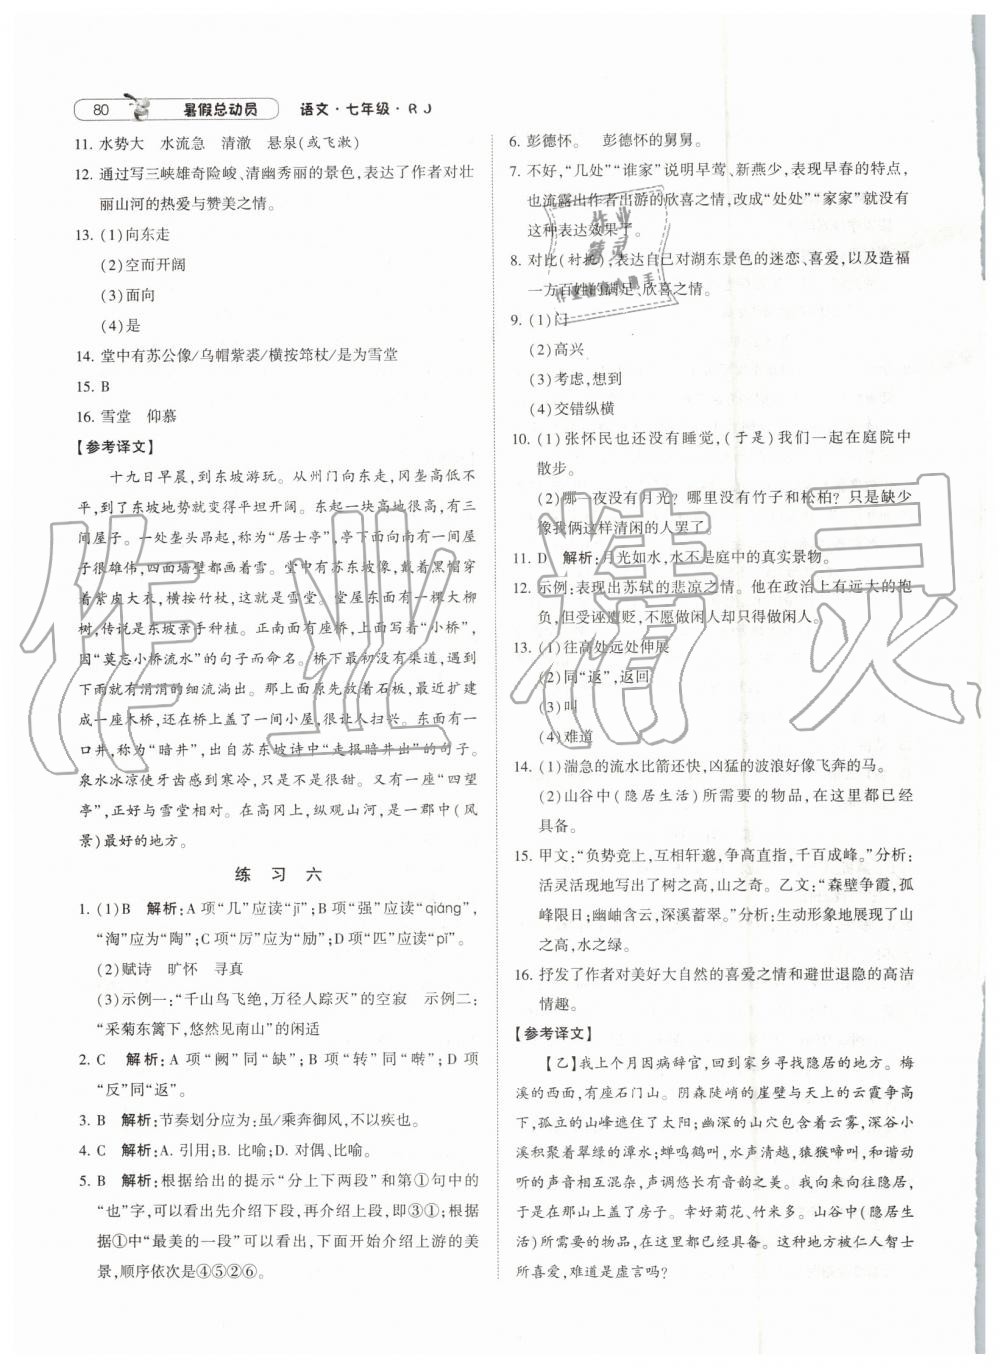 80 暑假总动员 语文·七年级·RJ
11. 水势大 水流急 清澈 悬泉(或飞漱)
12. 通过写三峡雄奇险峻、清幽秀丽的景色,表达了作者对壮
丽山河的热爱与赞美之情。
13. (1)向东走
(2)空而开阔
(3)面向
(4)是
14. 堂中有苏公像/乌帽紫裘/横按筇杖/是为雪堂
15. B
16. 雪堂 仰慕
【参考译文】
十九日早晨,到东坡游玩。从州门向东走,冈垄高低不
平,到了东坡地势就变得平坦开阔。东起一块高些的,有三
间屋子。一处垄头昂起,称为“居士亭”,亭下面南向有一间屋
子很雄伟,四面墙壁都画着雪。堂中有苏东坡像,戴着黑帽穿
着紫皮大衣,横按竹杖,这就是雪堂。堂屋东面有一棵大柳
树,传说是东坡亲手种植。正南面有座桥,上面写着“小桥”,
因“莫忘小桥流水”的句子而命名。桥下最初没有渠道,遇到
下雨就有涓涓的细流淌出。那上面原先放着石板,最近扩建
成一座木桥,还在桥上盖了一间小屋,很让人扫兴。东面有一
口井,称为“暗井”,出自苏东坡诗中“走报暗井出”的句子。
泉水冰凉使牙齿感到寒冷,只是不是很甜。又有一座“四望
亭”,正好与雪堂相对。在高冈上,纵观山河,是一郡中(风
景)最好的地方。
练习六
1. (1)B 解析:A 项“几”应读“jī”;B 项“强”应读“qiáng”,
“淘”应为“陶”;C 项“厉”应为“励”;D 项“匹”应读“pǐ”。
(2)赋诗 旷怀 寻真
(3)示例一:“千山鸟飞绝,万径人踪灭”的空寂 示例二:
“采菊东篱下,悠然见南山”的闲适
2. C 解析:A 项“阙”同“缺”;B 项“转”同“啭”;D 项
“反”同“返”。
3. B 解析:节奏划分应为:虽/乘奔御风,不以疾也。
4. C 解析:A. 引用;B. 比喻;D. 对偶、比喻。
5. B 解析:根据给出的提示“分上下两段”和第①句中的
“也”字,可以看出先介绍下段,再介绍上段,即③①;根
据①中“最美的一段”可以看出,下面开始介绍上游的美
景,顺序依次是④⑤②⑥。
6. 彭德怀。 彭德怀的舅舅。
7. 不好,“几处”“谁家”说明早莺、新燕少,表现早春的特点,
也流露出作者出游的欣喜之情,改成“处处”“家家”就没有
这种表达效果了。
8. 对比(衬托),表达自己对湖东景色的迷恋、喜爱,以及造福
一方百姓的满足、欣喜之情。
9. (1)门
(2)高兴
(3)考虑,想到
(4)交错纵横
10. (1)张怀民也还没有睡觉,(于是)我们一起在庭院中
散步。
(2)哪一夜没有月光?哪里没有竹子和松柏?只是缺少
像我俩这样清闲的人罢了。
11. D 解析:月光如水,水不是庭中的真实景物。
12. 示例:表现出苏轼的悲凉之情。他在政治上有远大的抱
负,但受诬遭贬,不愿做闲人却只得做闲人。
13. (1)往高处远处伸展
(2)同“返”,返回
(3)叫
(4)难道
14. (1)湍急的流水比箭还快,凶猛的波浪好像飞奔的马。
(2)山谷中(隐居生活)所需要的物品,在这里都已经
具备。
15. 甲文:“负势竞上,互相轩邈,争高直指,千百成峰。”分析:
活灵活现地写出了树之高,山之奇。乙文:“森壁争霞,孤
峰限日;幽岫含云,深溪蓄翠。”分析:生动形象地展现了山
之高,水之绿。
16. 抒发了作者对美好大自然的喜爱之情和避世退隐的高洁
情趣。
【参考译文】
【乙】我上个月因病辞官,回到家乡寻找隐居的地方。梅
溪的西面,有座石门山。阴森陡峭的崖壁与天上的云霞争高
下,孤立的山峰遮住了太阳;幽深的山穴包含着云雾,深谷小
溪积聚着翠绿的潭水;蝉鸣鹤叫,水声清越,猿猴啼叫,和谐动
听的声音相互混杂,声调悠长有音韵之美。我既然推崇隐居,
就在那山上盖了房子。幸好菊花、竹米多。山谷中(隐居生活)
所需要的物品,在这里都已经具备。这种地方被仁人智士
所喜爱,难道是虚言吗?
作业
精灵
作业精灵